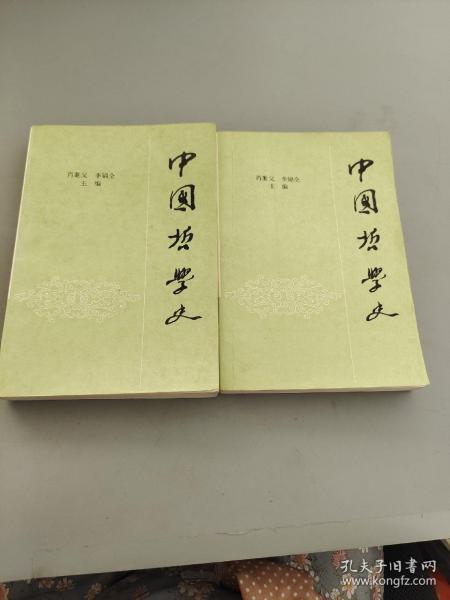 肖萐父 李锦全
主编
中國哲學史
肖萐父 李锦全
主编
中國哲學史
孔夫子旧书网
kongfz.com